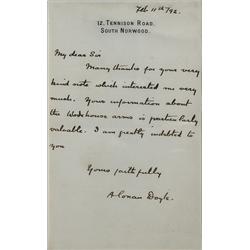 Feb 11th/92.
12, TENNISON ROAD,
SOUTH NORWOOD.
My dear Sir
Many thanks for your very
kind note which interested me very
much. Your information about
the Workhouse arms is particularly
valuable. I am greatly indebted to
you
Yours faithfully
A Conan Doyle.